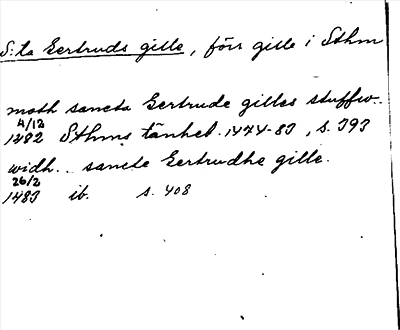 S:ta Gertruds gille, förr gille i Sthm
moth sancta Gertrude gilles stuffw..
4/12
1482 Sthms tänkeb. 1474-83, s. 393
widh.. sancte Gertrudhe gille.
26/2
1483 ib. s. 408